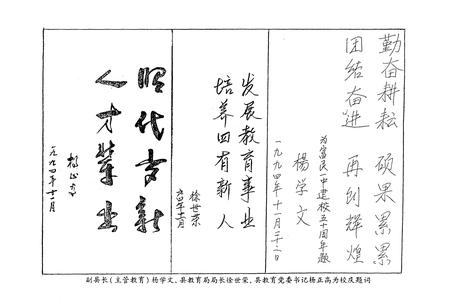 勤奋耕耘 硕果累累
团结奋进 再创辉煌
为富民一中建校五十周年题
杨学文
一九九四年十一月二十二日
发展教育事业
培养四有新人
徐世荣
年十一月
代新
人才辈出
杨正高
一九九四年十一月
副县长(主管教育)杨学文、县教育局局长徐世荣、县教育党委书记杨正高为校庆题词